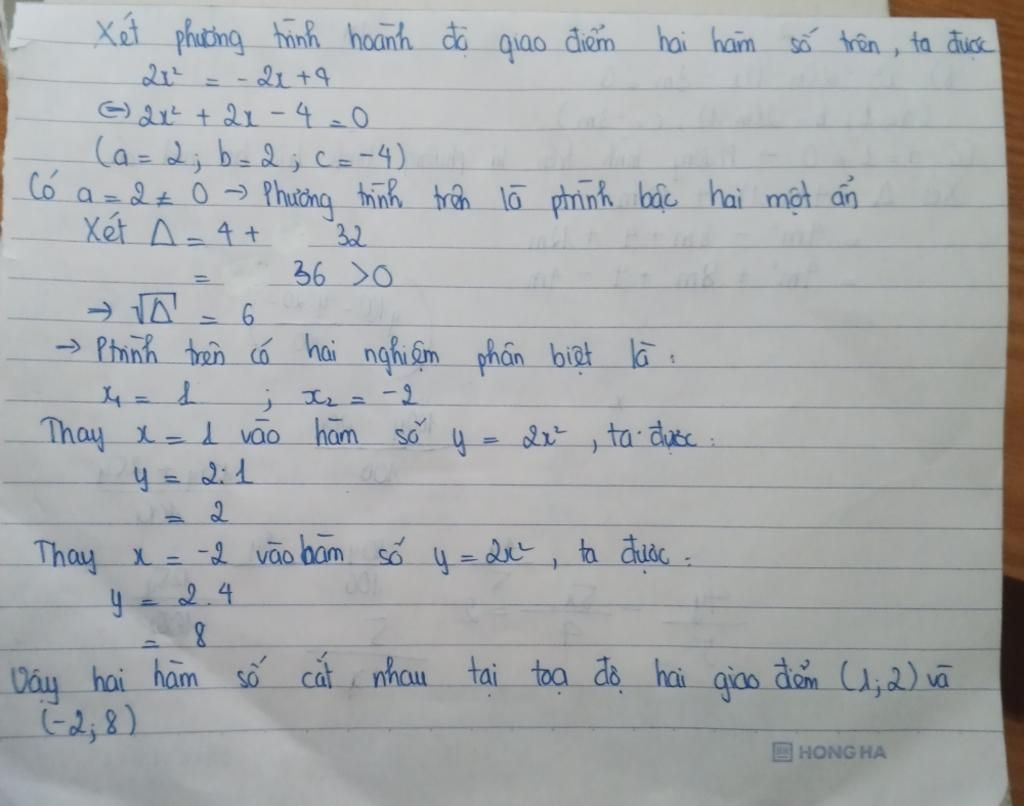 Xét phương trình hoành độ giao điểm hai hàm số trên, ta được
2x² = -2x+4
(=) 2x² + 2x - 4 = 0
(a = 2; b = 2; c = -4)
Có a = 2 ≠ 0 → Phương trình trên là ptrình bậc hai một ẩn
Xét Δ = 4 + 32
= 36 >0
→ √Δ = 6
→ Ptrình trên có hai nghiệm phân biệt là:
x₁ = 1 ; x₂ = -2
Thay x = 1 vào hàm số y = 2x², ta được:
y = 2.1
= 2
Thay x = -2 vào hàm số y = 2x², ta được:
y = 2.4
= 8
Vậy hai hàm số cắt nhau tại toạ độ hai giao điểm (1;2) và
(-2;8)
HONG HA